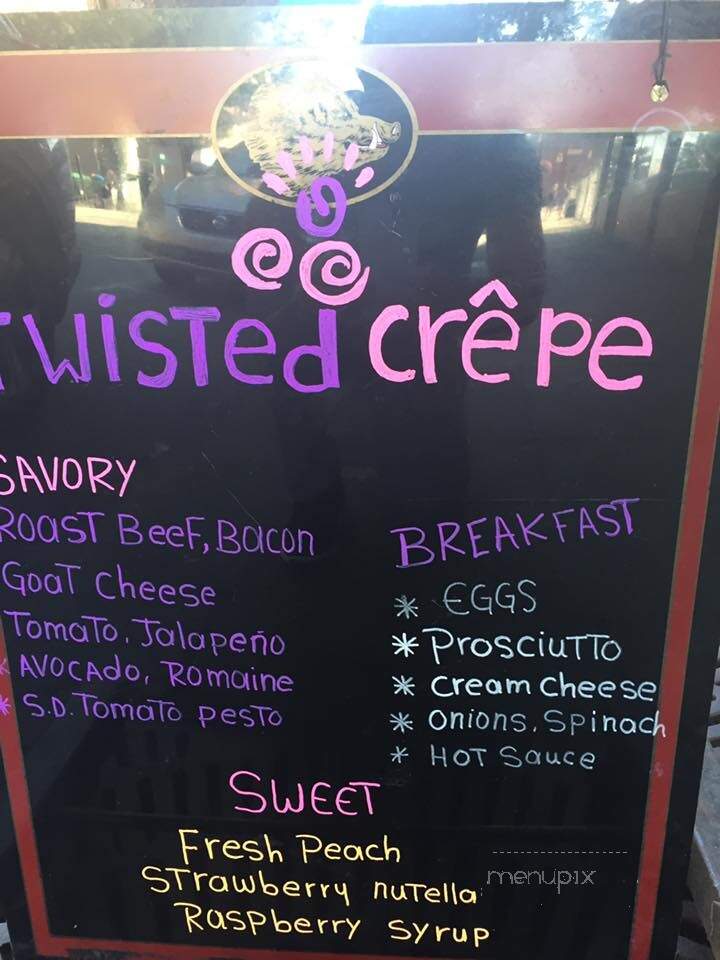 Twisted crêpe
SAVORY
Roast Beef, Bacon
Goat cheese
Tomato, Jalapeño
* Avocado, Romaine
* S.D. Tomato pesto
BREAKFAST
* EGGS
* Prosciutto
* cream cheese
* onions, spinach
* HOT Sauce
SWEET
Fresh Peach
Strawberry nutella
Raspberry syrup
menupix